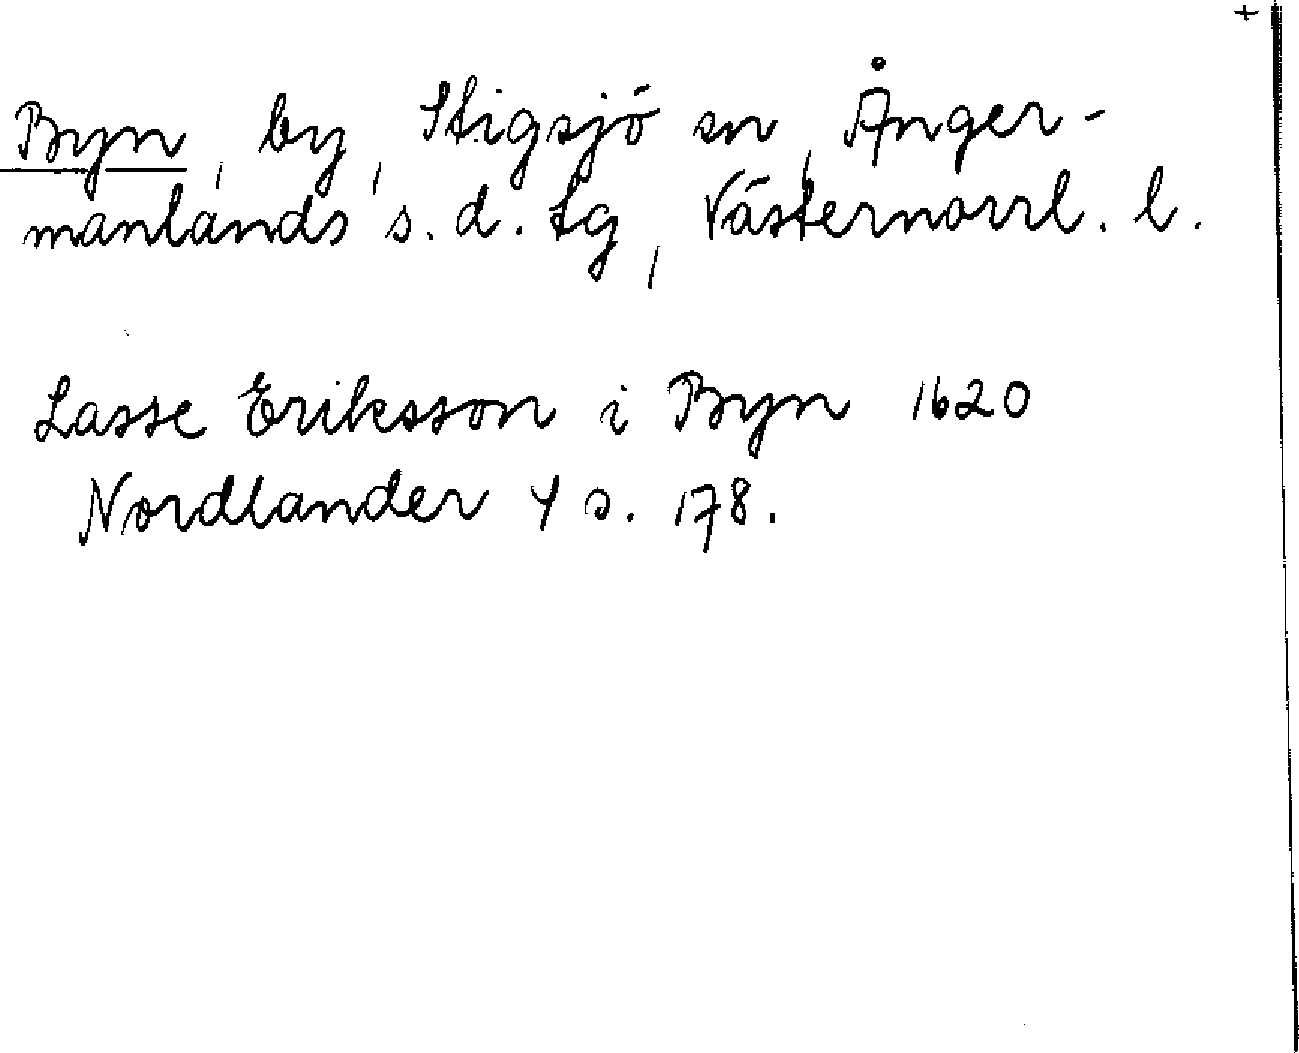 +
Byn, by, Stigsjö sn, Ånger-
manlands s. d. tg, Västernorrl. l.
Lasse Eriksson i Byn 1620
Nordlander 4 s. 178.